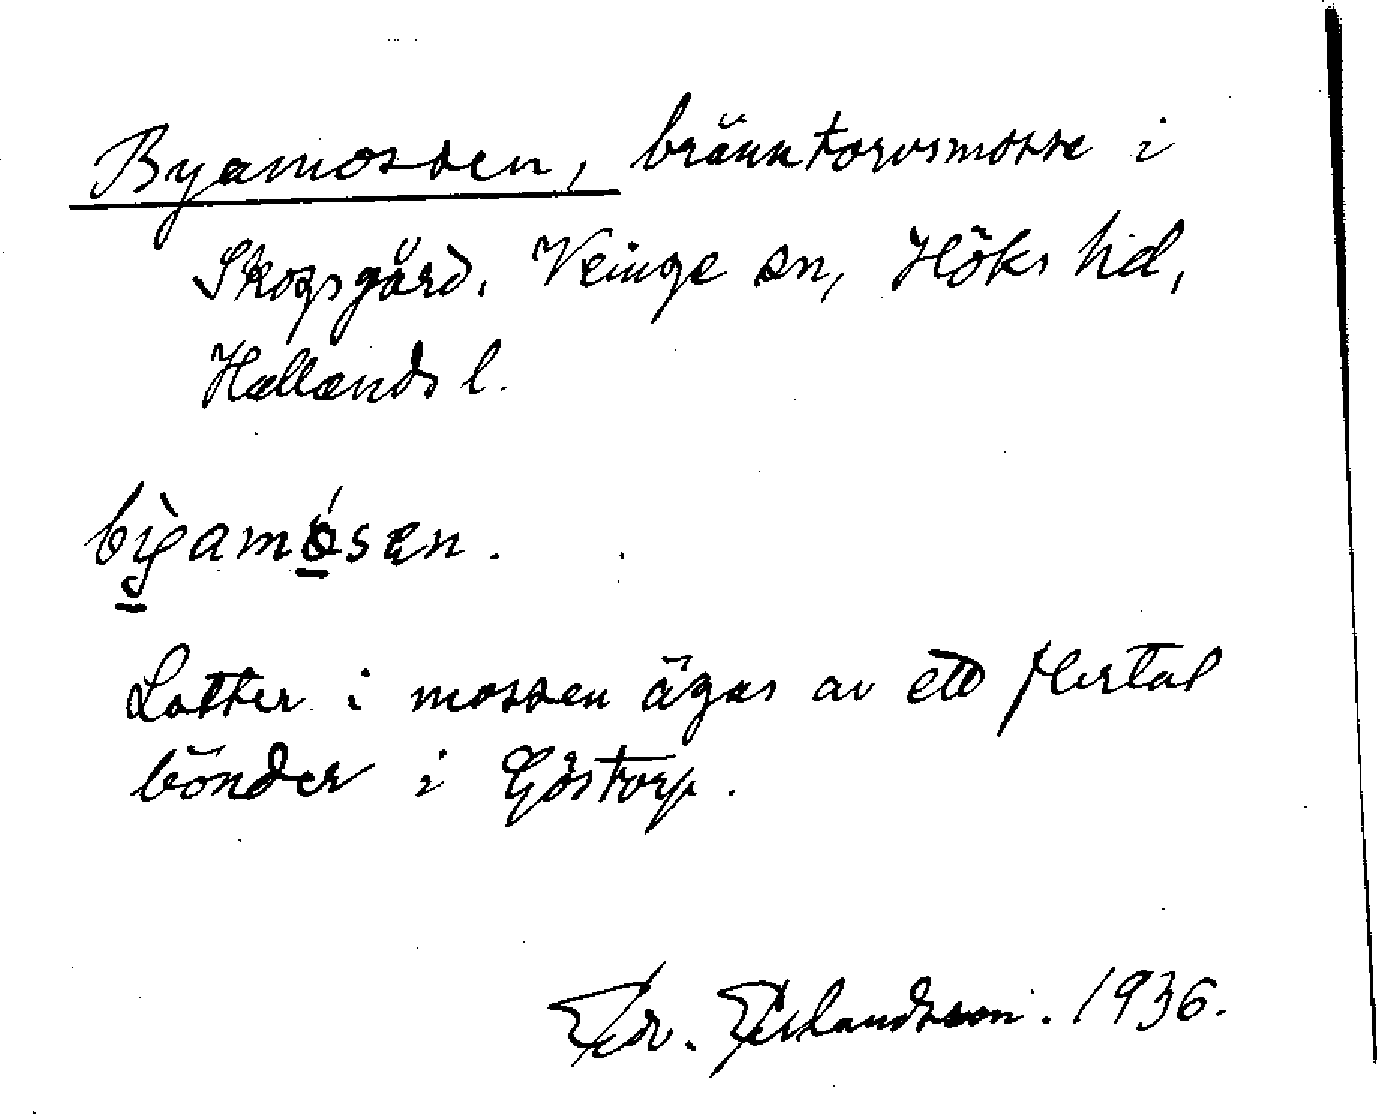 Byamossen, bränntorvsmosse i
Skogsgård. Veinge sn, Höks hd,
Hallands l.
bỳamósen.
Lotter i mossen ägas av ett flertal
bönder i Göstorp.
Edv. Erlandsson. 1936.